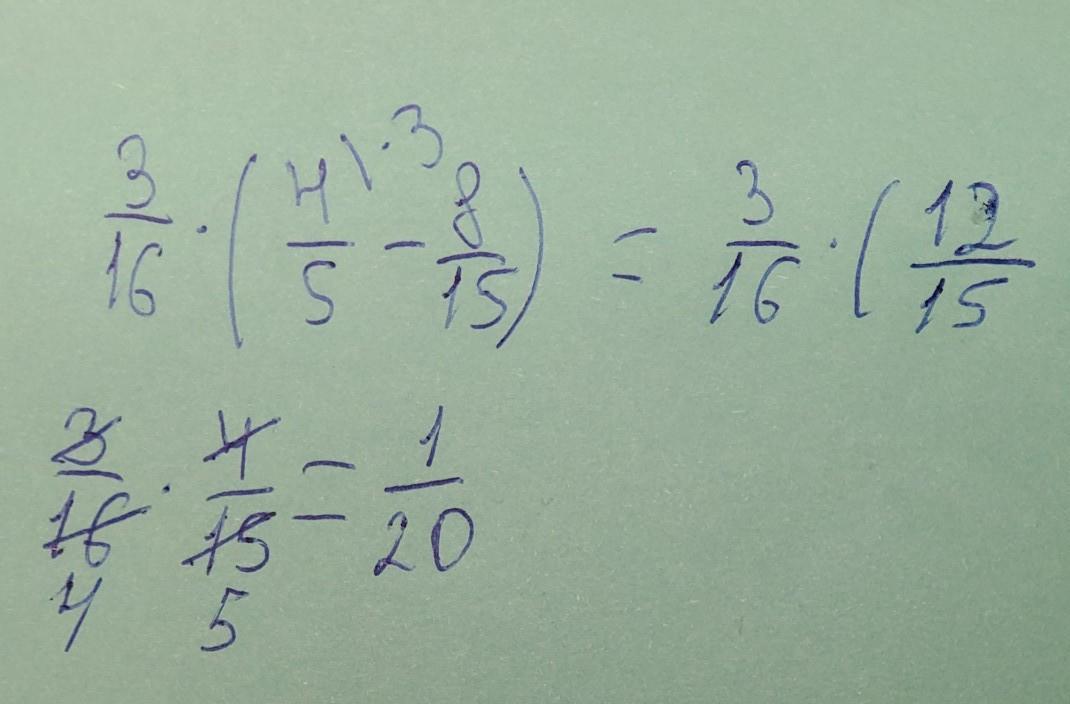 3/16 · (4/5 \·3 - 8/15) = 3/16 · (12/15
3/16 · 4/15 = 1/20
4 5